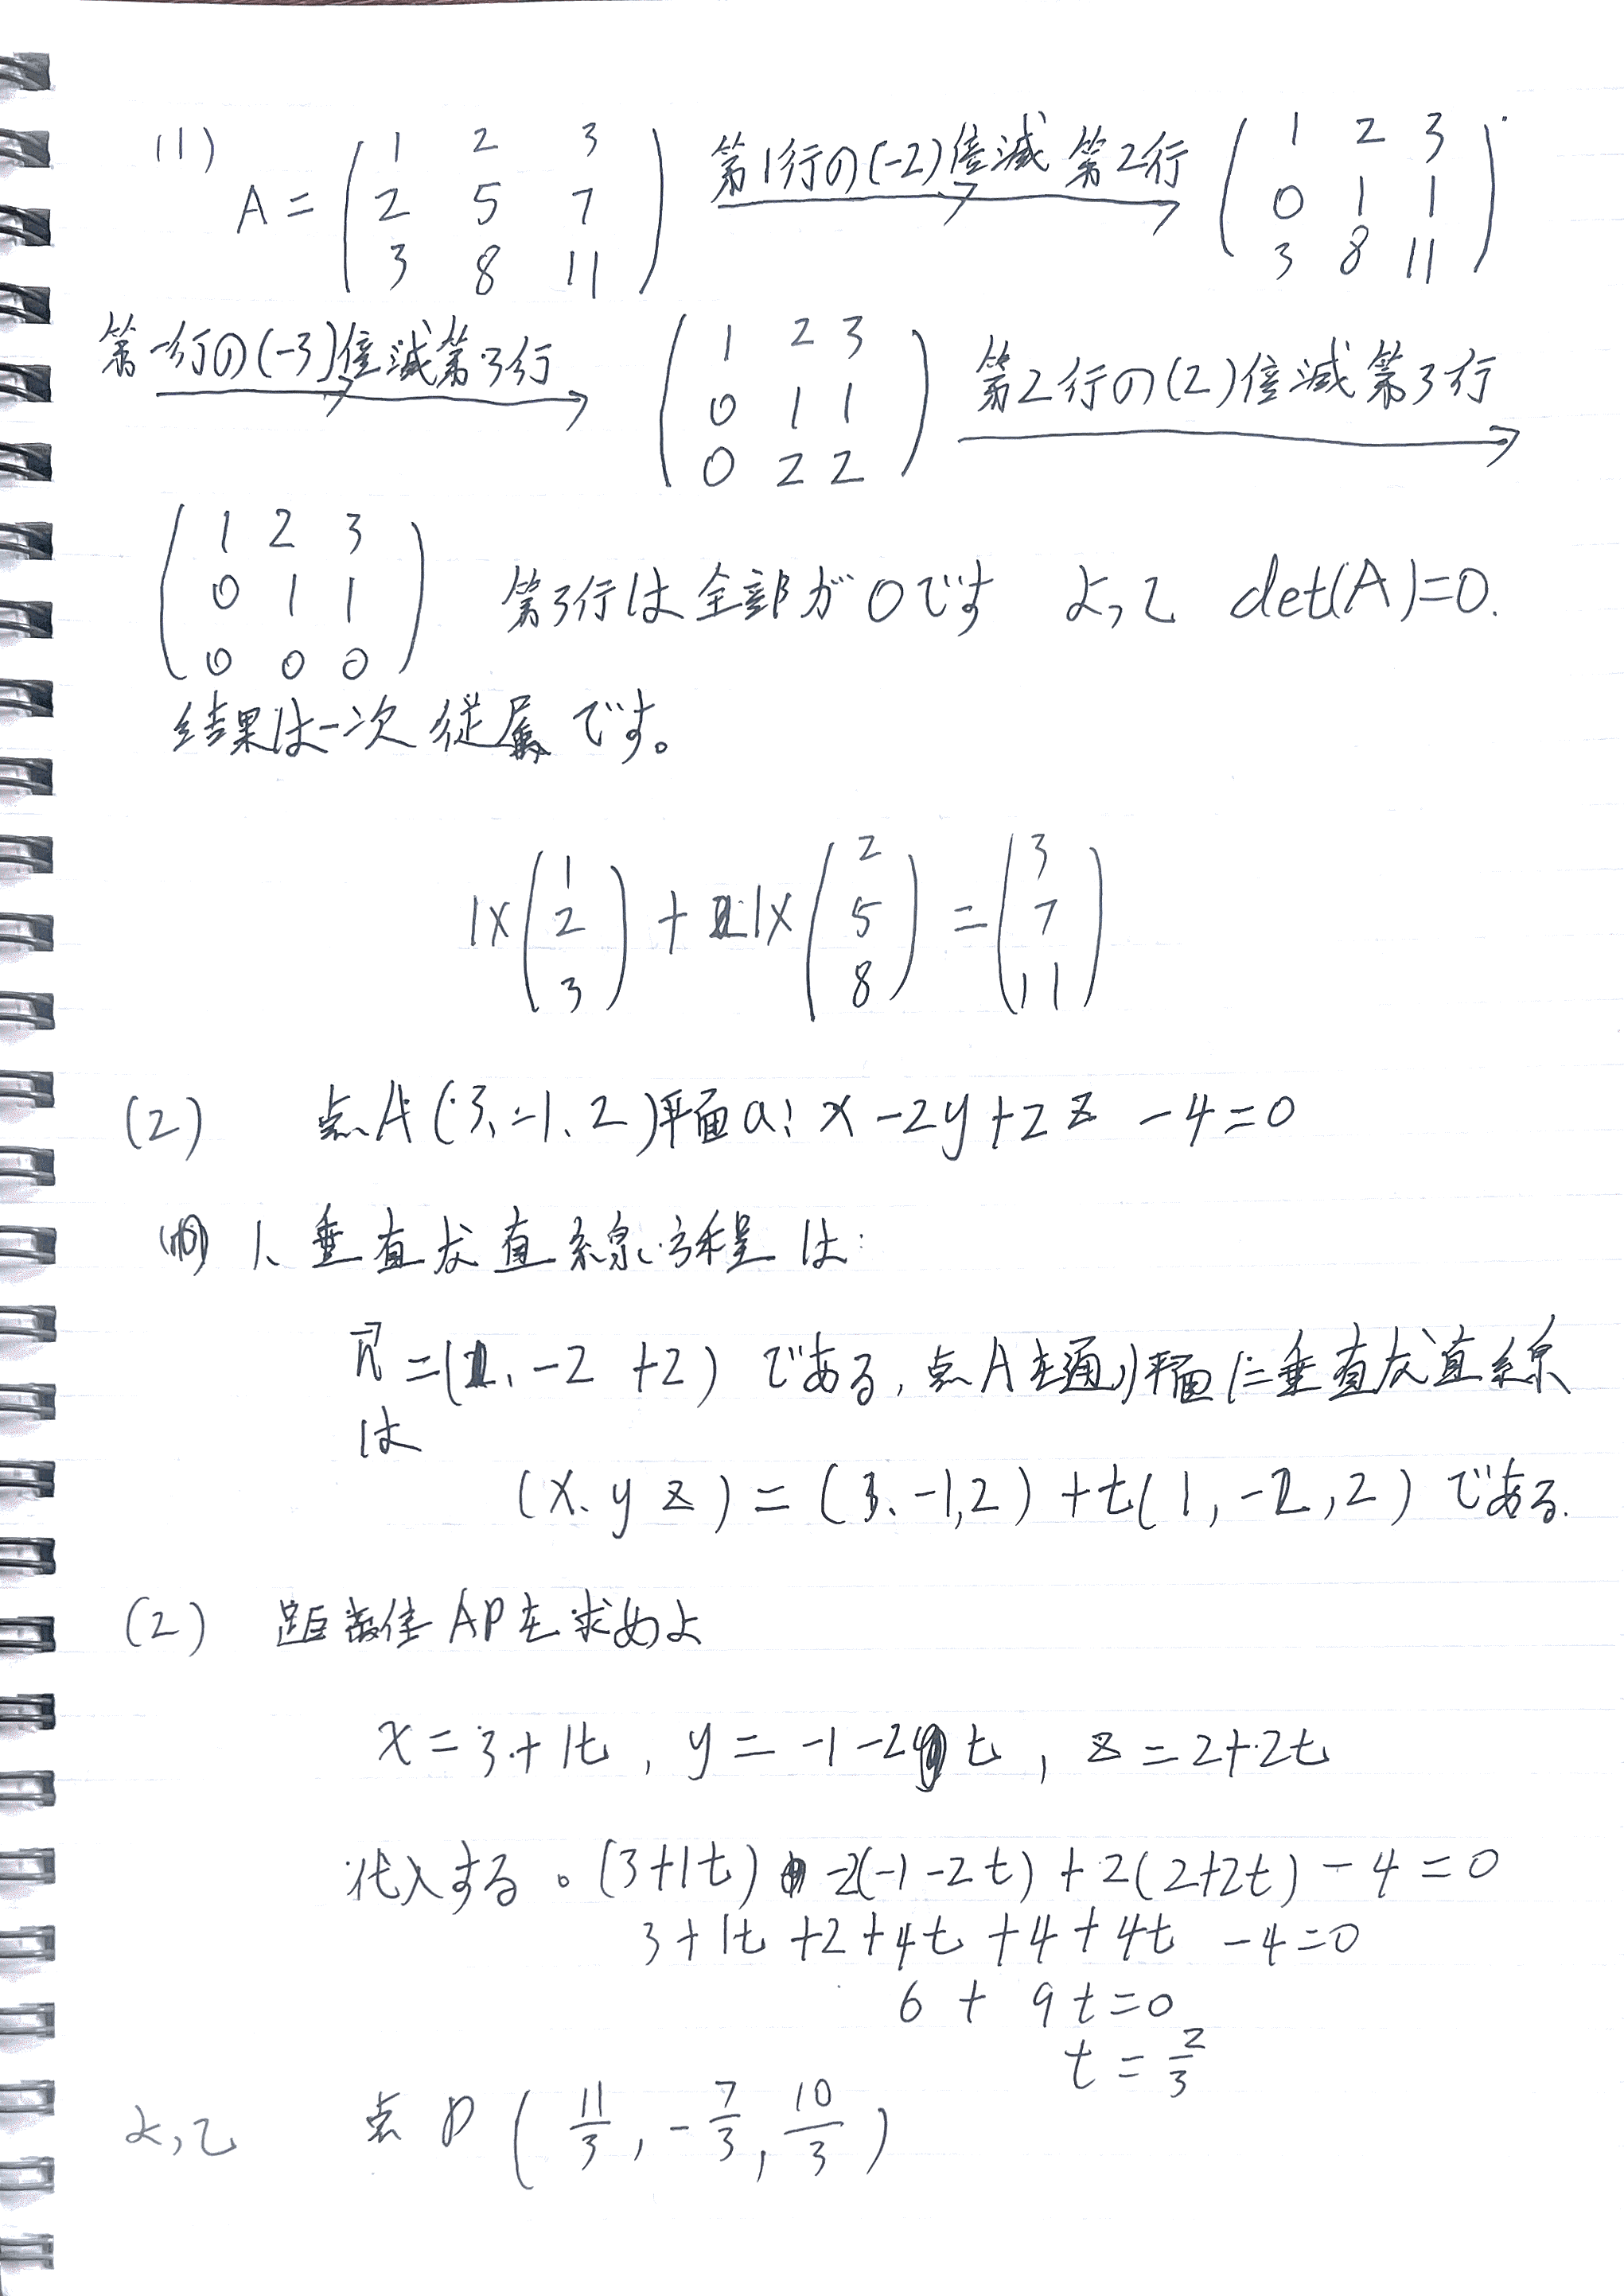 (1) A = ( 1 2 3 / 2 5 7 / 3 8 11 ) 第1行の(-2)倍減 第2行 → ( 1 2 3 / 0 1 1 / 3 8 11 )
第一行の(-3)倍減第3行 → ( 1 2 3 / 0 1 1 / 0 2 2 ) 第2行の(2)倍減第3行 →
( 1 2 3 / 0 1 1 / 0 0 0 ) 第3行は全部が0です よって det(A)=0.
结果は一次 従属です。
1×( 1 / 2 / 3 ) + 1×( 2 / 5 / 8 ) = ( 3 / 7 / 11 )
(2) 点A(3,-1、2)平面α: x-2y+2z-4=0
1、垂直な直線方程は:
n⃗=(1、-2 +2)である, 点Aを通り平面に垂直な直線
は
(x、y z)=(3、-1,2)+t(1,-2,2)である.
(2) 距離 APを求めよ
x=3+1t, y=-1-2t, z=2+2t
代入する。(3+1t)-2(-1-2t)+2(2+2t)-4=0
3+1t+2+4t+4+4t-4=0
6+9t=0
t=2/3
よって 点P(11/3,-7/3,10/3)